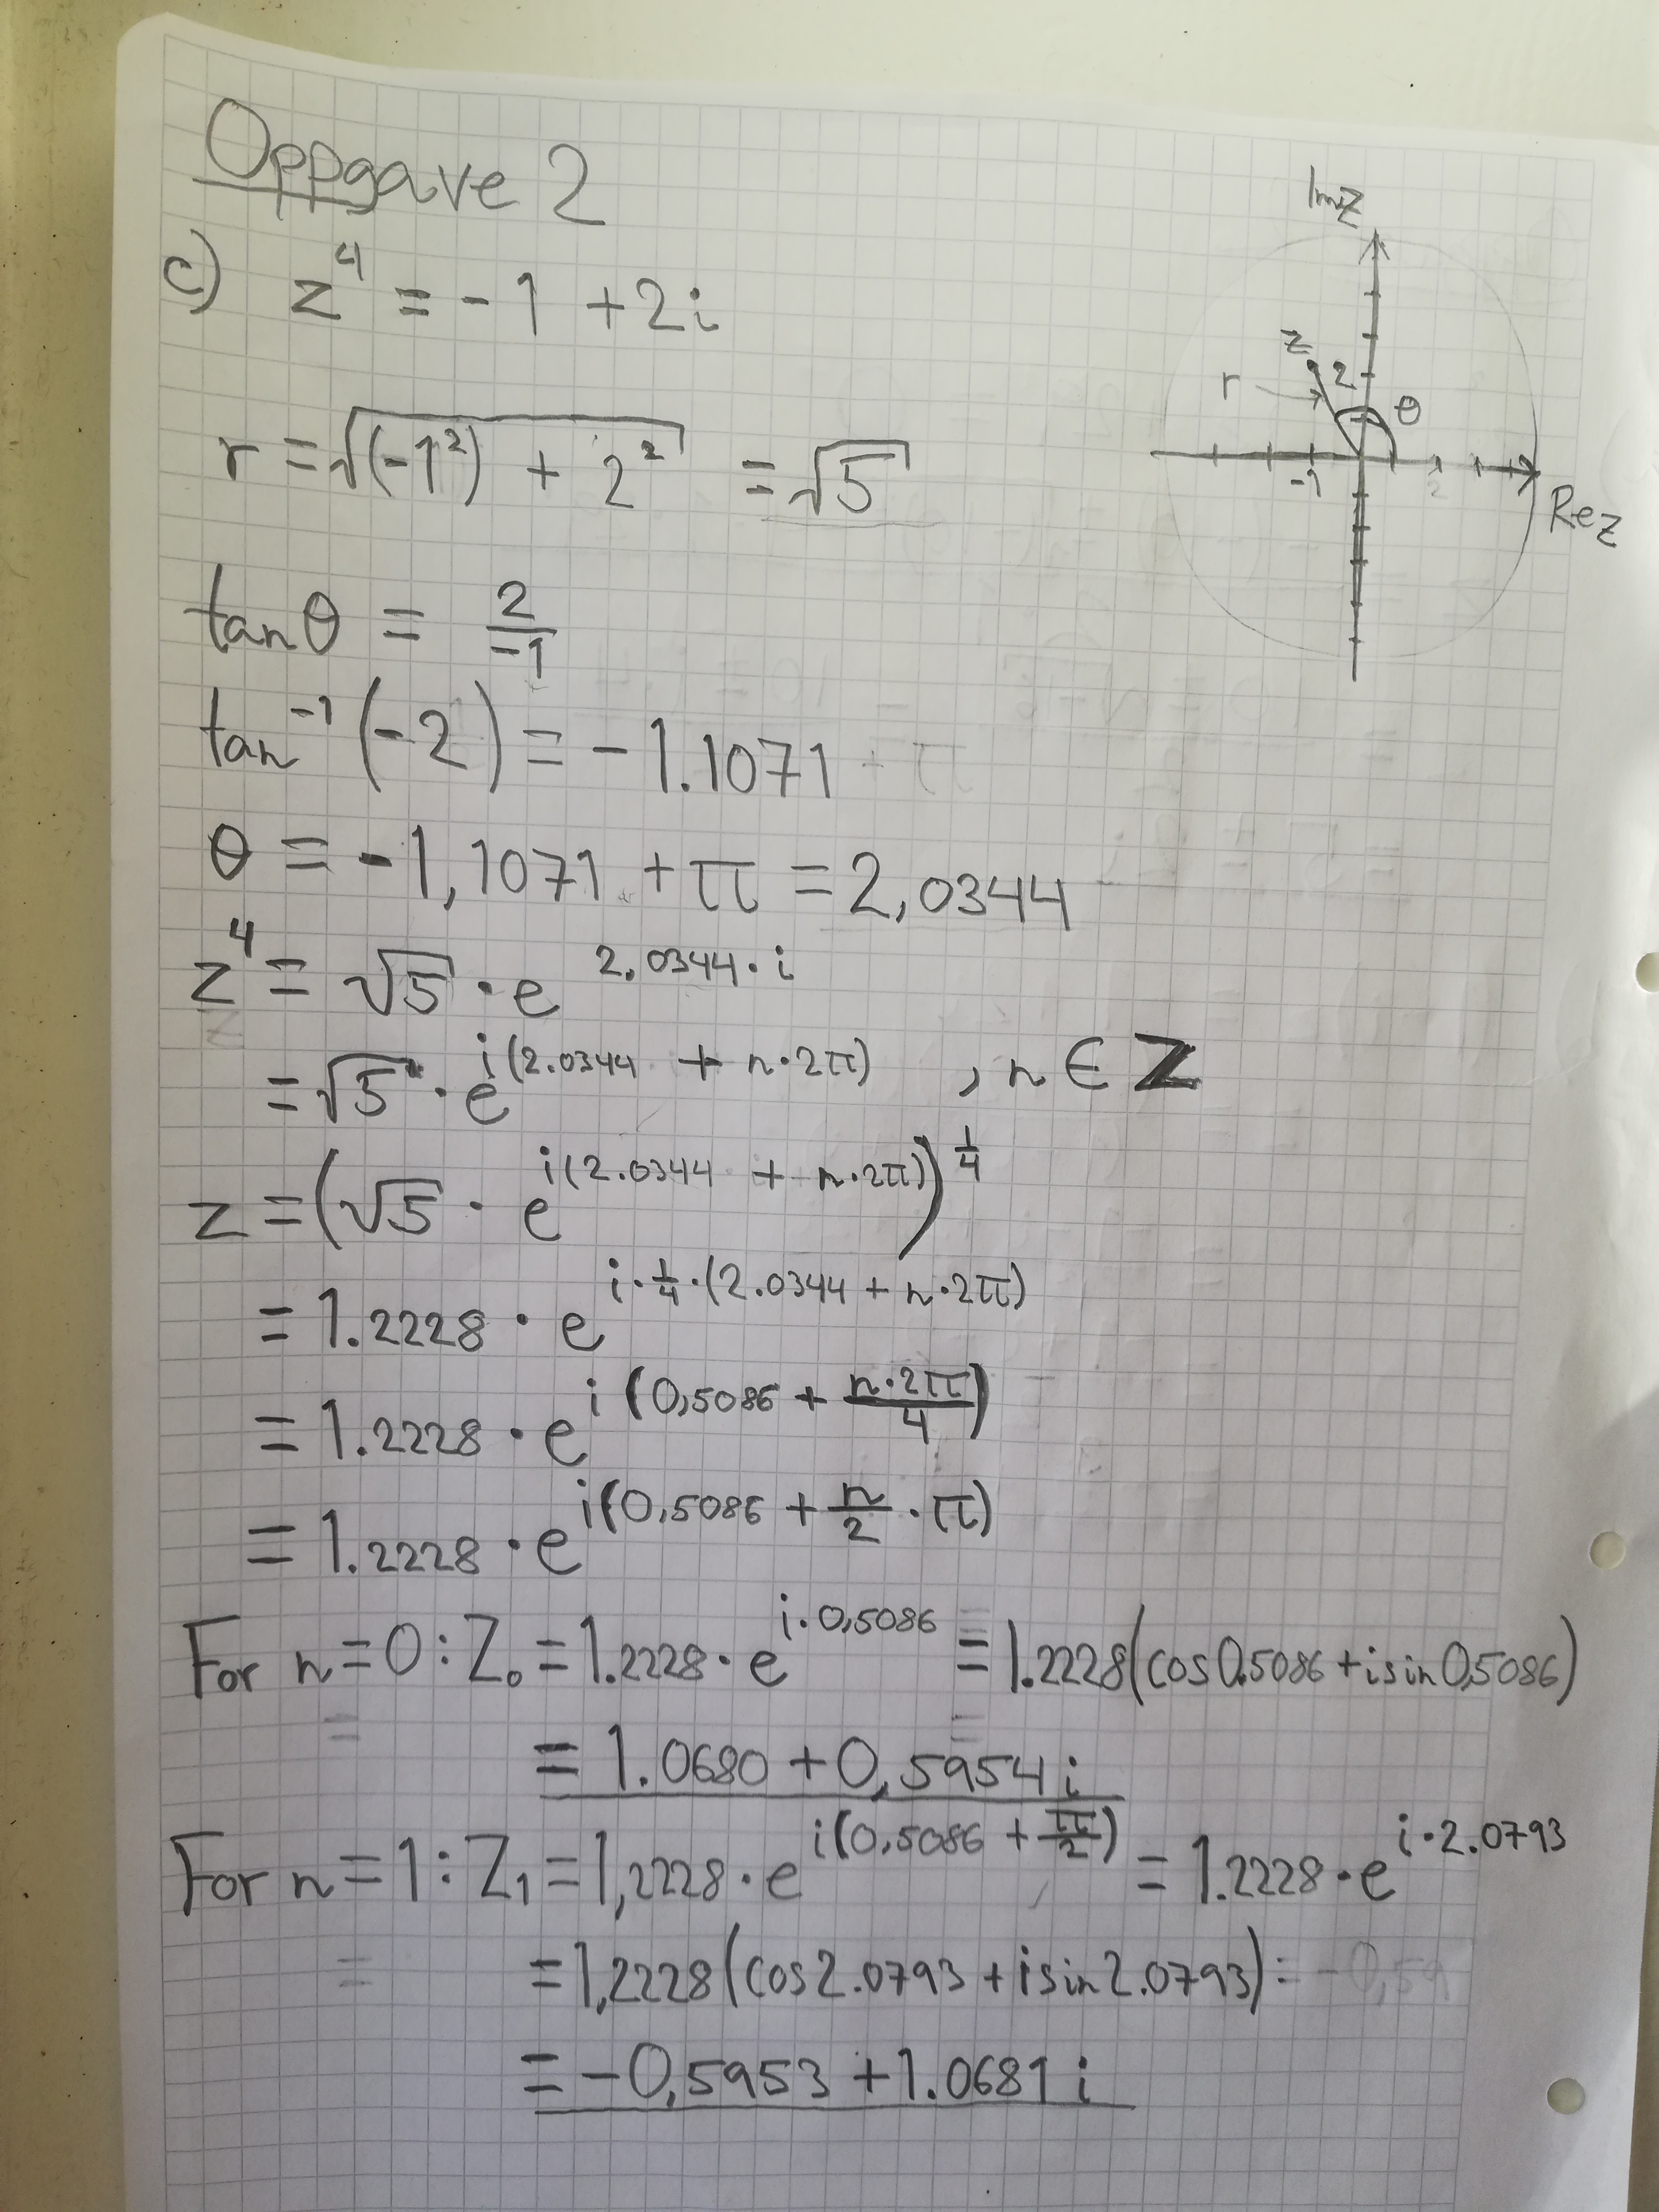 Oppgave 2
c) z⁴ = -1 + 2i
Im z
z
2
r
θ
-1
2
Re z
r = √((-1²) + 2²) = √5
tan θ = 2/-1
tan⁻¹(-2) = -1.1071 + π
θ = -1,1071 + π = 2,0344
z⁴ = √5 · e^(2.0344·i)
= √5 · e^(i(2.0344 + n·2π)) , n ∈ Z
z = (√5 · e^(i(2.0344 + n·2π)))^(1/4)
= 1.2228 · e^(i·1/4·(2.0344 + n·2π))
= 1.2228 · e^(i(0,5086 + n·2π/4))
= 1.2228 · e^(i(0,5086 + n/2 · π))
For n = 0 : Z₀ = 1.2228 · e^(i·0,5086) = 1.2228(cos 0.5086 + i sin 0,5086)
= 1.0680 + 0,5954 i
For n = 1 : Z₁ = 1,2228 · e^(i(0,5086 + π/2)) = 1.2228 · e^(i·2.0793)
= 1,2228(cos 2.0793 + i sin 2.0793) = -0,59
= -0,5953 + 1.0681 i